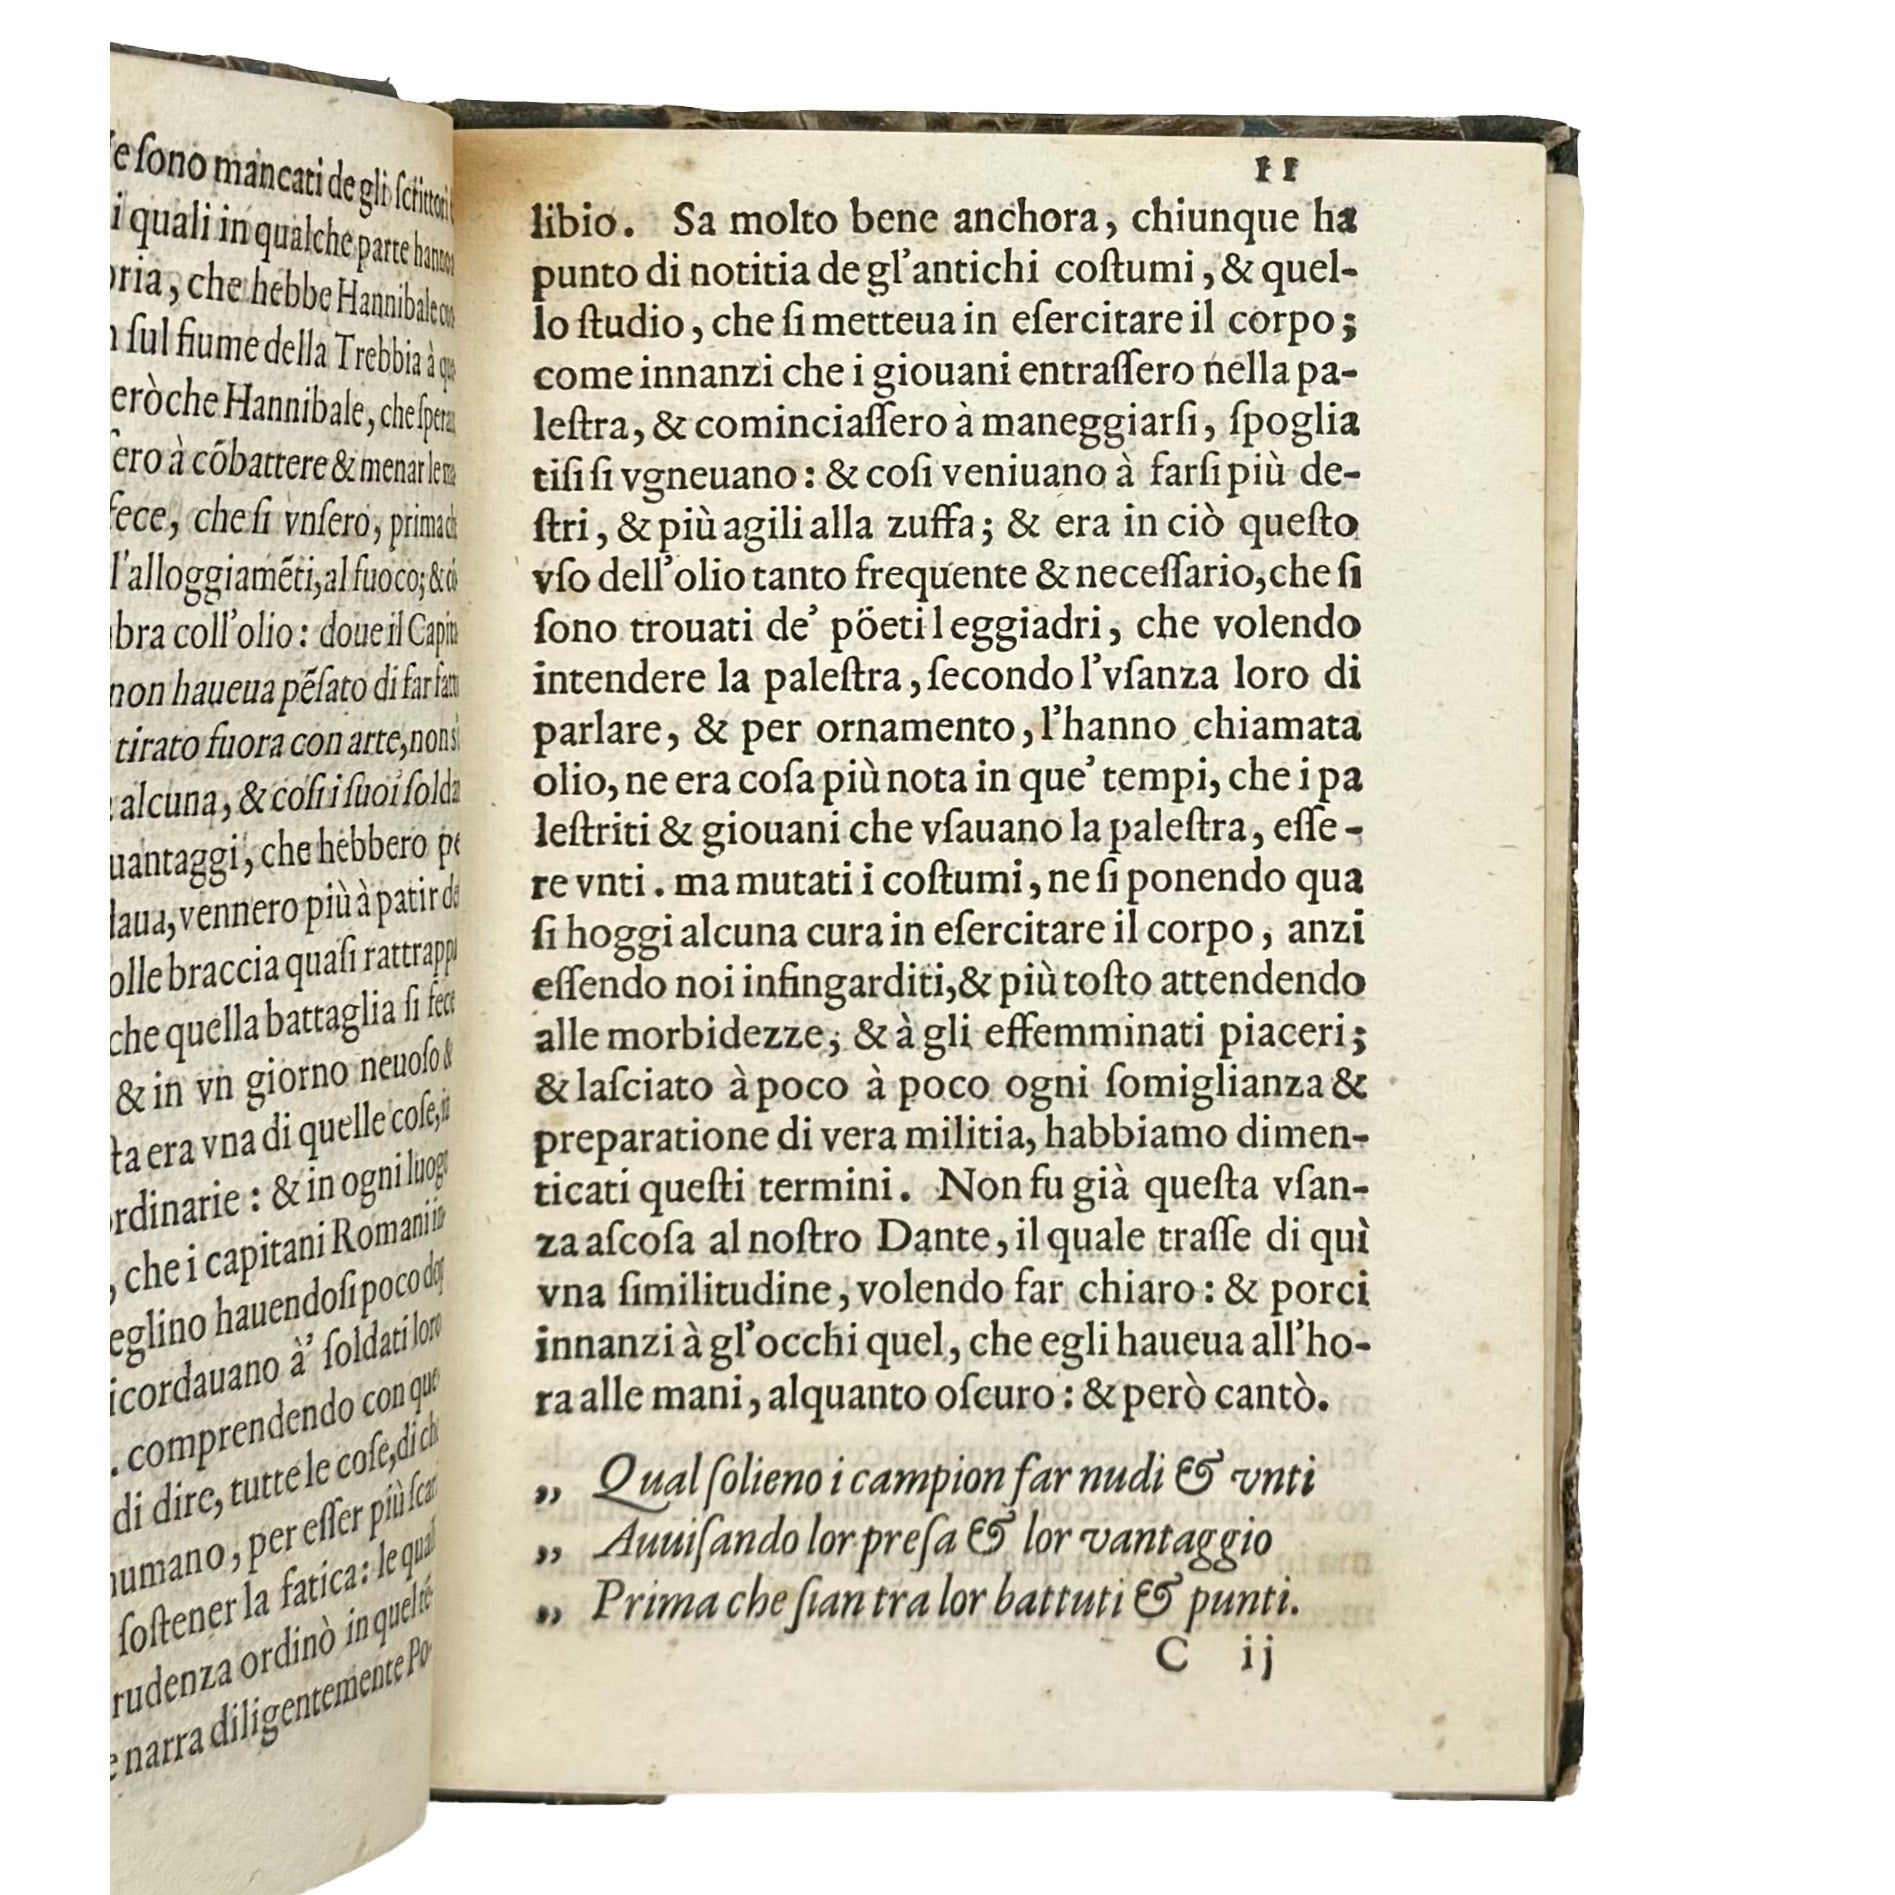 e ſono mancati de gli ſcrittori
i quali in qualche parte hanno
oria, che hebbe Hannibale
ſul fiume della Trebbia à
eròche Hannibale, che
ſero à cõbattere & menar le
fece, che ſi vnſero, prima
l'alloggiamẽti, al fuoco; &
bra coll'olio: doue il
non haueua pẽſato di far
tirato fuora con arte, non
alcuna, & coſi i ſuoi
uantaggi, che hebbero
daua, vennero più à patir
olle braccia quaſi
che quella battaglia ſi fece
& in vn giorno neuoſo &
ta era vna di quelle coſe,
ordinarie: & in ogni luogo
, che i capitani Romani
eglino hauendoſi poco
icordauano à' ſoldati loro
. comprendendo con
di dire, tutte le coſe, di
humano, per eſſer più
ſoſtener la fatica: le
rudenza ordinò in
narra diligentemente Po-
11
libio. Sa molto bene anchora, chiunque ha
punto di notitia de gl'antichi coſtumi, & quel-
lo ſtudio, che ſi metteua in eſercitare il corpo;
come innanzi che i giouani entraſſero nella pa-
leſtra, & cominciaſſero à maneggiarſi, ſpoglia
tiſi ſi vgneuano: & coſi veniuano à farſi più de-
ſtri, & più agili alla zuffa; & era in ciò queſto
vſo dell'olio tanto frequente & neceſſario, che ſi
ſono trouati de' pöeti leggiadri, che volendo
intendere la paleſtra, ſecondo l'vſanza loro di
parlare, & per ornamento, l'hanno chiamata
olio, ne era coſa più nota in que' tempi, che i pa
leſtriti & giouani che vſauano la paleſtra, eſſe-
re vnti. ma mutati i coſtumi, ne ſi ponendo qua
ſi hoggi alcuna cura in eſercitare il corpo, anzi
eſſendo noi infingarditi, & più toſto attendendo
alle morbidezze; & à gli effemminati piaceri;
& laſciato à poco à poco ogni ſomiglianza &
preparatione di vera militia, habbiamo dimen-
ticati queſti termini. Non fu già queſta vſan-
za aſcoſa al noſtro Dante, il quale traſſe di quì
vna ſimilitudine, volendo far chiaro: & porci
innanzi à gl'occhi quel, che egli haueua all'ho-
ra alle mani, alquanto oſcuro: & però cantò.
„ Qual ſolieno i campion far nudi & vnti
„ Auuiſando lor preſa & lor vantaggio
„ Prima che ſian tra lor battuti & punti.
C ij